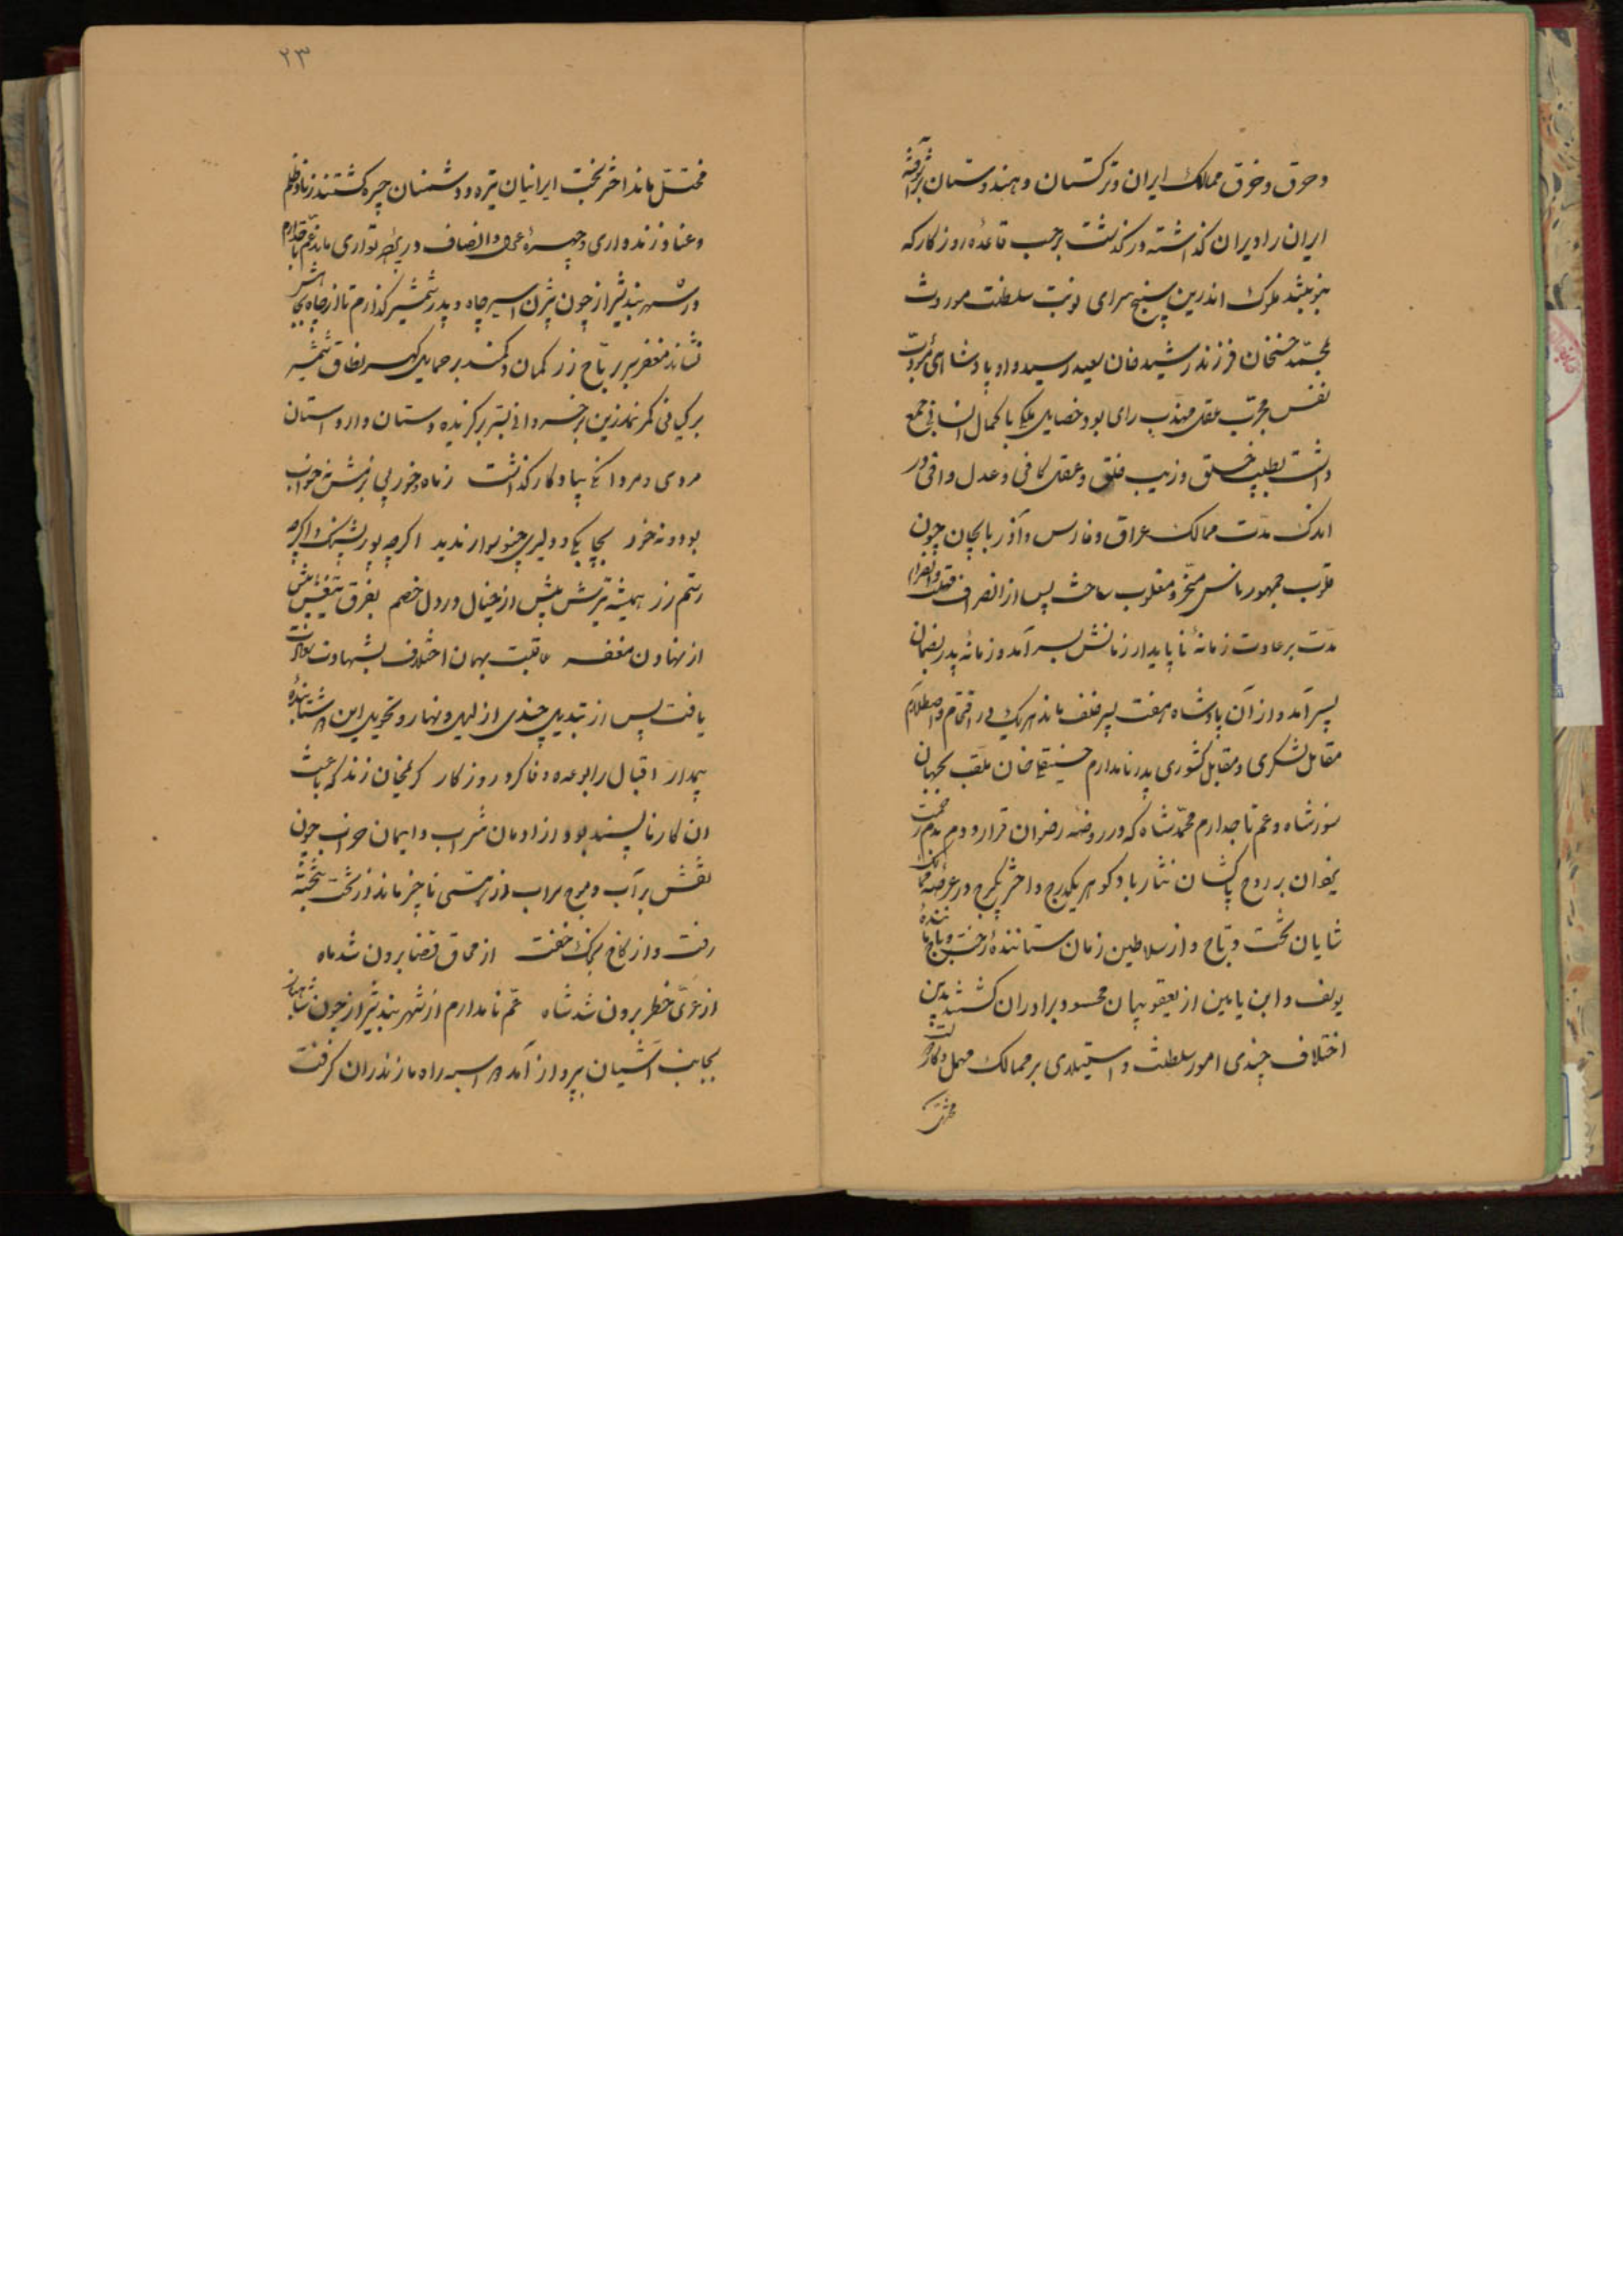 و حرق و خرق ممالک ایران و ترکستان و هندوستان
ایران را ویران گذاشته درگذشت برحسب قاعده روزگار که
ملوک اندرین سپنج سرای نوبت سلطنت موروث
بمحمد حسنخان فرزند رشید خان سعید رسید و او پادشاهی
نفس مجرب عقل مهذب رای بود خصایل ملکی با کمال انسانی جمع
داشت بطیب خلق و زیب خلق و عقل کافی و عدل وافی در
اندک مدت ممالک عراق و فارس و آذربایجان چون
قلوب جمهور ناس مسخر و مغلوب ساخت پس از انصراف
مدت برعادت زمانهٔ ناپایدار زمانش بسر آمد و زمانهٔ پدر
پسر آمد و از آن پادشاه هفت پسر خلف ماند هریک در اقتحام و اصطلام
مقابل لشکری و مقابل کشوری پدر نامدارم حسینقلیخان ملقب بجهان
سوز شاه و عم تاجدارم محمدشاه که در روضه رضوان قرار دارم
بر روح پاکشان نثار باد گوهر یکدرج و اختر یکبرج در عرصه
شایان تخت و تاج و از سلاطین زمان ستانندهٔ
یوسف و ابن یامین از یعقوبیان محسود برادران گشتند بدین
اختلاف چندی امور سلطنت و استیلای بر ممالک مهمل و کار
مختل
۲۳
مختل ماند اختر بخت ایرانیان تیره و دشمنان چیره گشتند
و عناد زند واری و چهرهٔ عدل و انصاف در پردهٔ تواری ماند عم تاجدارم
در شهربند شیراز چون بیژن اسیر چاه و پدر شمشیر گذارم تا از چاه
نشاند مغفر بر تاج زر کمان و کمند بر حمایل گهر نطاق شمشیر
بر کیانی کمر نمدزین بر خسروانی بستر برگزیده دستان وار داستان
مردی و مردانگی بیادگار گذاشت ز ماه و خور پی بزمش
بود و نه خور بجا یکی و دلیری چنو سوار ندید اگرچه پور پشنک و اگرچه
رستم زر همیشه ترسش بیش از خیال در دل خصم بفرق تیغش پیش
از نهادن مغفر عاقبت بهمان اختلاف بشهادت
یافت پس از تبدیل چندی از لیل و نهار و تحویل این
اقبال را بوعده وفا کرد روزگار کریمخان زند که باعث
ان کار ناپسند بود و از ادمان شراب و ایمان خراب چون
نقش بر آب و موج سراب از هستی ناچیز ماند و از تخت بتخته
رفت و از کاخ بمرک خفت از محاق قضا برون شد ماه
از عرّی خطر برون شد شاه عم نامدارم از شهربند شیراز چون شاهباز
بجانب آشیان بپرواز آمد و راه مازندران گرفت